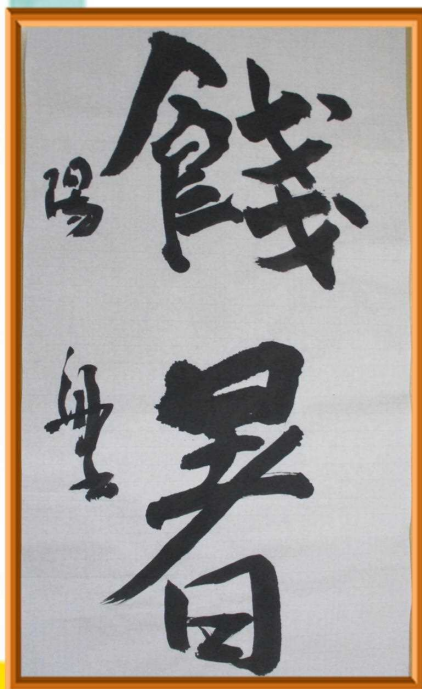 餞暑
陽